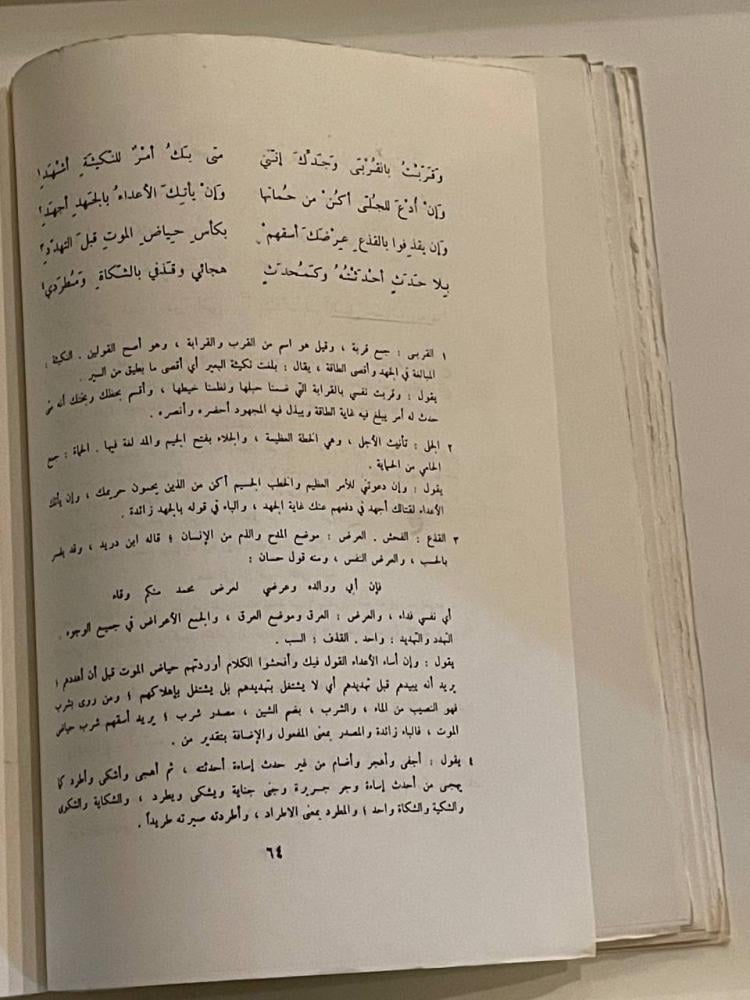 وَقَرَّبْتُ بالقُرْبَى وَجَدِّكَ إنّني متى يَكُ أمْرٌ للنّكيثَةِ أشْهَدِ١
وَإنْ أُدْعَ للجُلّى أكُنْ من حُماتِها وَإنْ يأتِكَ الأعداءُ بالجَهدِ أجهَدِ٢
وَإن يقذِفوا بالقذعِ عِرْضَكَ أسقهمْ بكأسِ حياضِ الموتِ قبلَ التهدّدِ٣
بِلا حَدَثٍ أحْدَثْتُهُ وكَمُحدَثٍ هجائي وقَذفي بالشّكاةِ ومُطرَدي٤
١ القربى : جمع قربة ، وقيل هو اسم من القرب والقرابة ، وهو أصح القولين . النكيثة :
المبالغة في الجهد وأقصى الطاقة ، يقال : بلغت نكيثة البعير أي أقصى ما يطيق من السير .
يقول : وقربت نفسي بالقرابة التي ضمنا حبلها ونظمنا خيطها ، وأقسم بحظك وبختك أنه متى
حدث له أمر يبلغ فيه غاية الطاقة ويبذل فيه المجهود أحضره وأنصره .
٢ الجلى : تأنيث الأجل ، وهي الخطة العظيمة ، والجلاء بفتح الجيم والمد لغة فيها . الحماة : جمع
الحامي من الحماية .
يقول : وإن دعوتني للأمر العظيم والخطب الجسيم أكن من الذين يحمون حريمك ، وإن يأتك
الأعداء لقتالك أجهد في دفعهم عنك غاية الجهد ، والباء في قوله بالجهد زائدة .
٣ القذع : الفحش . العرض : موضع المدح والذم من الإنسان ؛ قاله ابن دريد ، وقد يفسر
بالحسب ، والعرض النفس ، ومنه قول حسان :
فإن أبي ووالده وعرضي لعرض محمد منكم وقاء
أي نفسي فداء ، والعرض : العرق وموضع العرق ، والجمع الأعراض في جميع الوجوه .
التهدد والتهديد : واحد . القذف : السب .
يقول : وإن أساء الأعداء القول فيك وأفحشوا الكلام أوردتهم حياض الموت قبل أن أهددهم ؛
يريد أنه يبيدهم قبل تهديدهم أي لا يشتغل بتهديدهم بل يشتغل بإهلاكهم ؛ ومن روى بشرب
فهو النصيب من الماء ، والشرب ، بضم الشين ، مصدر شرب ؛ يريد أسقهم شرب حياض
الموت ، فالباء زائدة والمصدر بمعنى المفعول والإضافة بتقدير من .
٤ يقول : أجفى وأهجر وأضام من غير حدث إساءة أحدثته ، ثم أهجى وأشكى وأطرد كما
يهجى من أحدث إساءة وجر جريرة وجنى جناية ويشكى ويطرد ، والشكاية والشكوى
والشكية والشكاة واحد ؛ والمطرد بمعنى الاطراد ، وأطردته صيرته طريداً .
٦٤